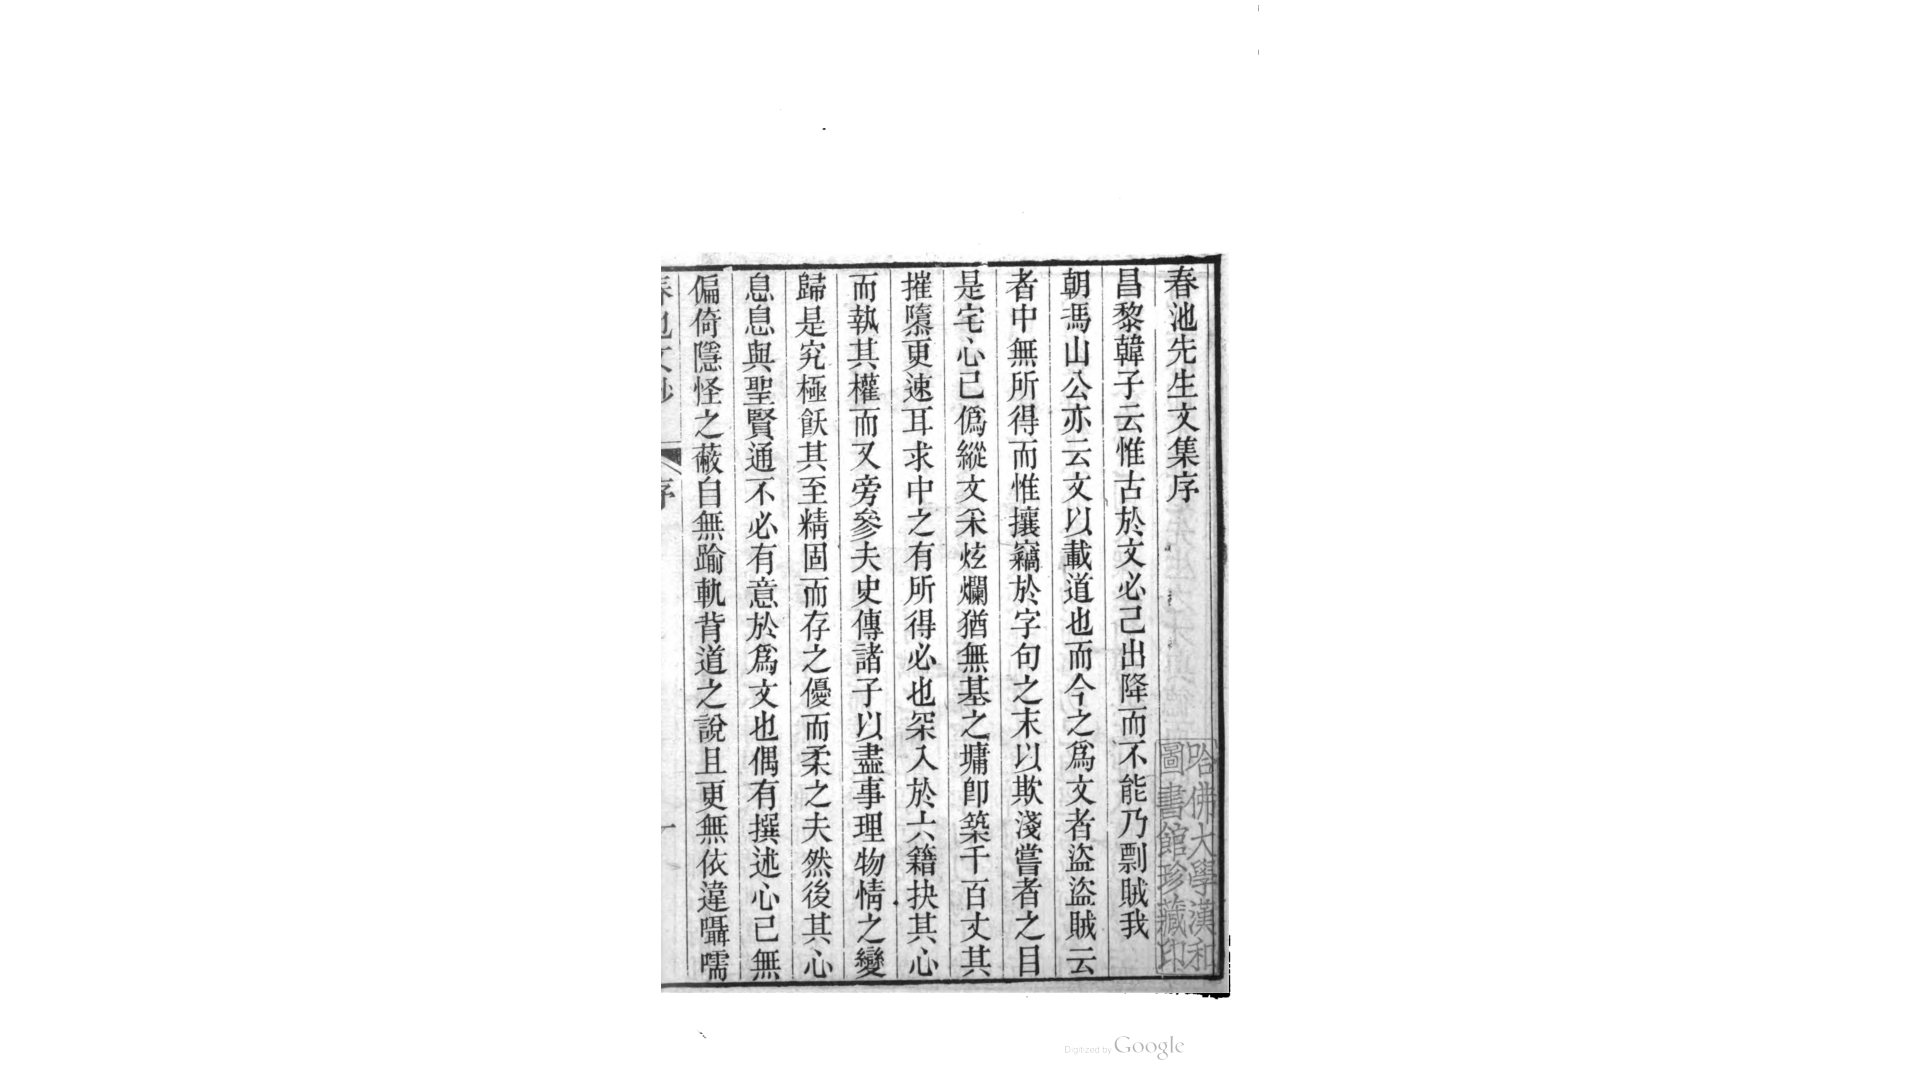 春池先生文集序
昌黎韓子云惟古於文必己出降而不能乃剽賊我
朝馮山公亦云文以載道也而今之爲文者盜盜賊云
者中無所得而惟攘竊於字句之末以欺淺嘗者之目
是宅心已僞縱文采炫爛猶無基之墉卽築千百丈其
摧隳更速耳求中之有所得必也罙入於六籍抉其心
而執其權而又旁參夫史傳諸子以盡事理物情之變
歸是究極飫其至精固而存之優而柔之夫然後其心
息息與聖賢通不必有意於爲文也偶有撰述心已無
偏倚隱怪之蔽自無踰軌背道之說且更無依違囁嚅
春池文鈔
序
一
哈佛大學漢和
圖書館珍藏印
Digitized by Google